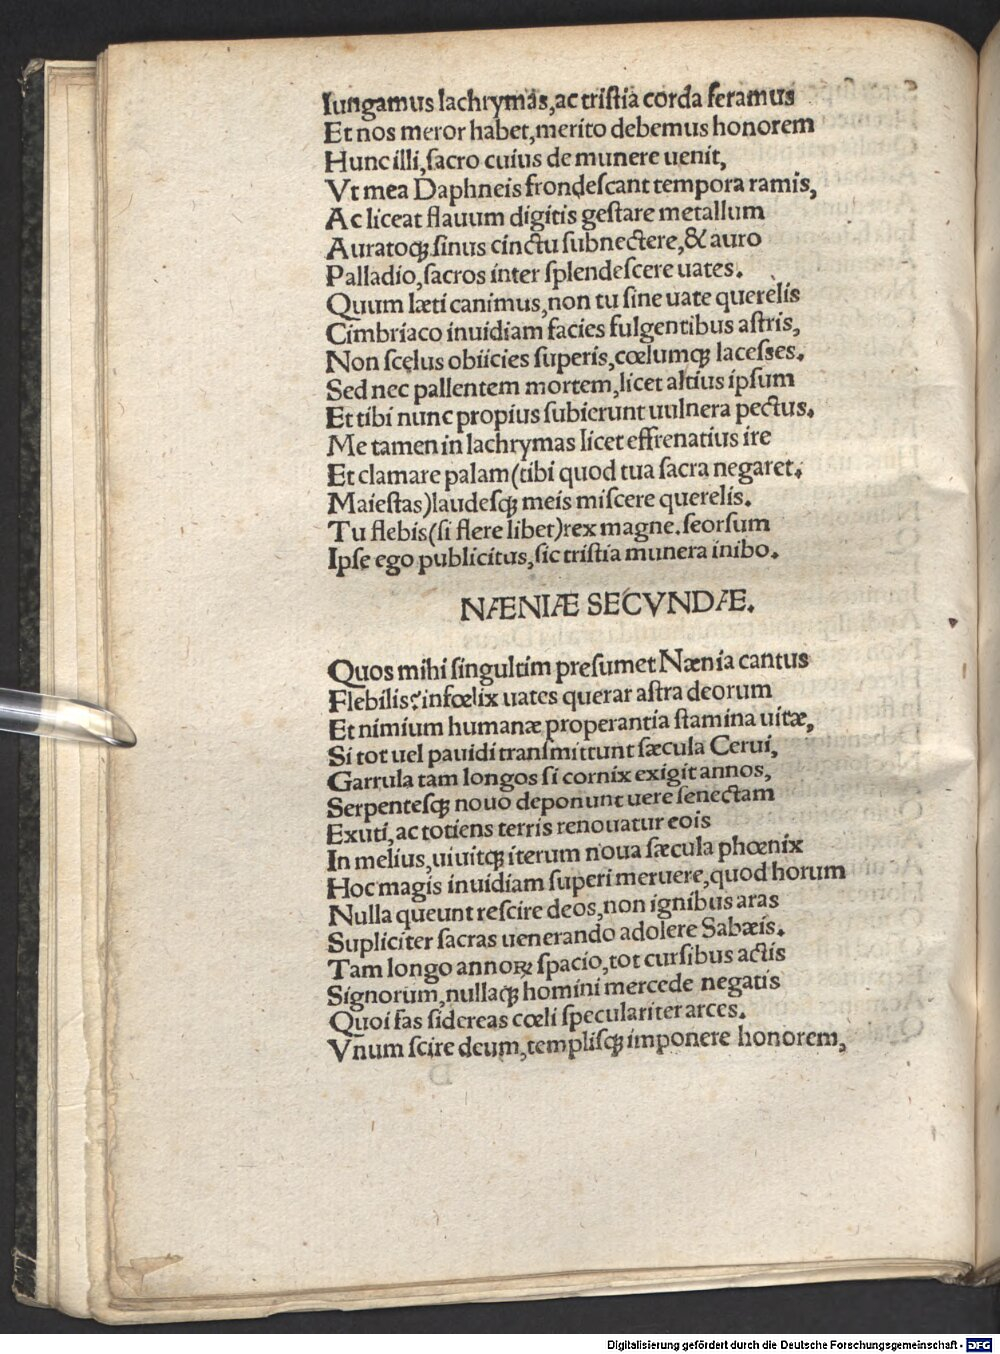 Iungamus lachrymas,ac triſtia corda feramus
Et nos meror habet,merito debemus honorem
Hunc illi,ſacro cuius de munere uenit,
Vt mea Daphneis frondeſcant tempora ramis,
Ac liceat flauum digitis geſtare metallum
Auratoqꝫ ſinus cinctu ſubnectere,& auro
Palladio,ſacros inter ſplendeſcere uates.
Quum læti canimus,non tu ſine uate querelis
Cimbriaco inuidiam facies fulgentibus aſtris,
Non ſcęlus obiicies ſuperis,cœlumqꝫ laceſſes.
Sed nec pallentem mortem,licet altius ipſum
Et tibi nunc propius ſubierunt uulnera pectus.
Me tamen in lachrymas licet effrenatius ire
Et clamare palam(tibi quod tua ſacra negaret.
Maieſtas)laudeſqꝫ meis miſcere querelis.
Tu flebis(ſi flere libet)rex magne.ſeorſum
Ipſe ego publicitus,ſic triſtia munera inibo.
NÆNIÆ SECVNDÆ.
Quos mihi ſingultim preſumet Nænia cantus
Flebilis?infœlix uates querar aſtra deorum
Et nimium humanæ properantia ſtamina uitæ,
Si tot uel pauidi tranſmittunt ſæcula Cerui,
Garrula tam longos ſi cornix exigit annos,
Serpenteſqꝫ nouo deponunt uere ſenectam
Exuti,ac totiens terris renouatur eois
In melius,uiuitqꝫ iterum noua ſæcula phœnix
Hoc magis inuidiam ſuperi meruere,quod horum
Nulla queunt reſcire deos,non ignibus aras
Supliciter ſacras uenerando adolere Sabæis.
Tam longo annoꝝ ſpacio,tot curſibus actis
Signorum,nullaqꝫ homini mercede negatis
Quoi fas ſidereas cœli ſpeculariter arces.
Vnum ſcire deum,templiſqꝫ imponere honorem,
Digitalisierung gefördert durch die Deutsche Forschungsgemeinschaft - DFG